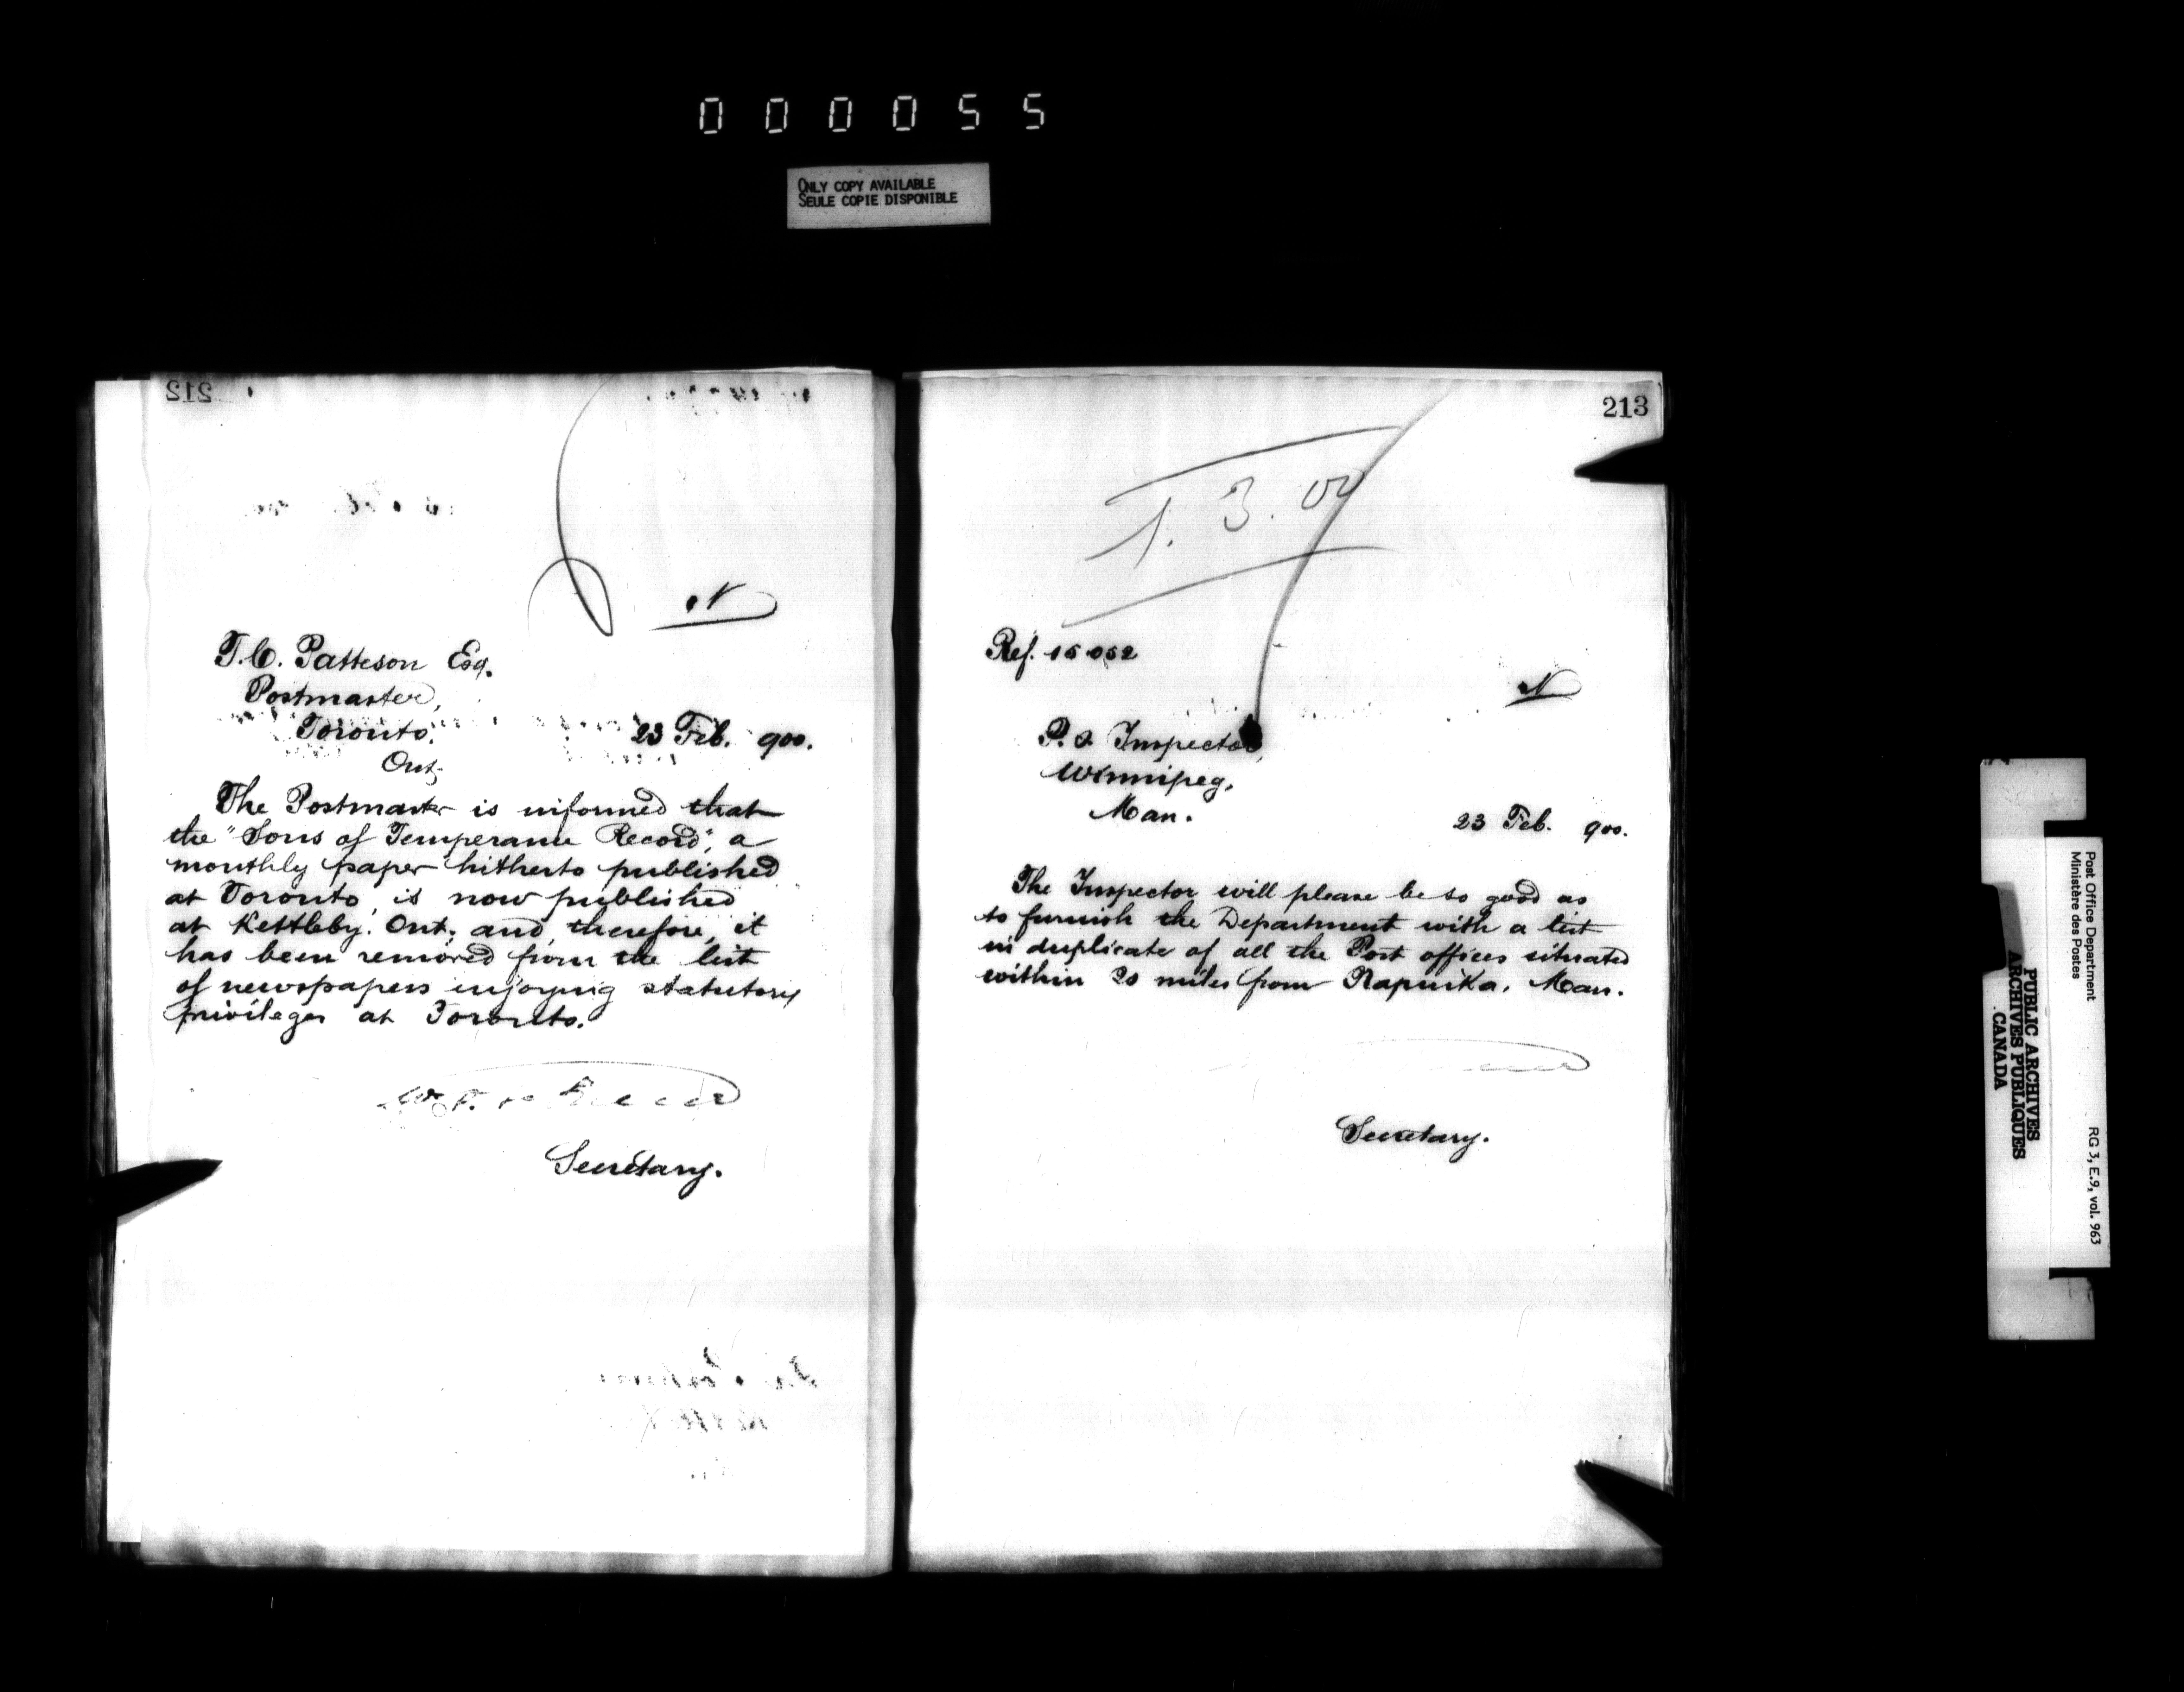 000055
ONLY COPY AVAILABLE
SEULE COPIE DISPONIBLE
212
N
T.C. Patteson Esq.
Postmaster,
Toronto.
23 Feb. 900.
Ont.
The Postmaster is informed that
the "Sons of Temperance Record", a
monthly paper hitherto published
at Toronto, is now published
at Kettleby, Ont., and, therefore, it
has been removed from the list
of newspapers enjoying statutory
privileges at Toronto.
Secretary.
213
1.3.00
Ref. 15052
N
P.O. Inspector,
Winnipeg,
Man.
23 Feb. 900.
The Inspector will please be so good as
to furnish the Department with a list
in duplicate of all the Post offices situated
within 20 miles from Napinka, Man.
Secretary.
Post Office Department
Ministère des Postes
RG 3, E.9, vol. 963
PUBLIC ARCHIVES
ARCHIVES PUBLIQUES
CANADA